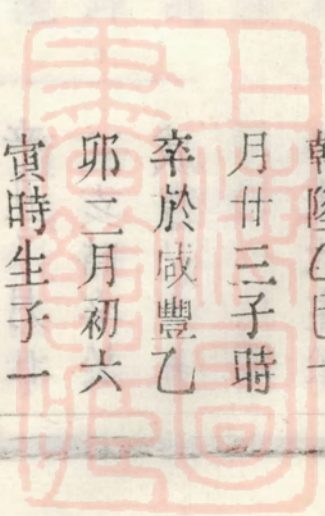 乾隆乙巳十
月廿三子時
卒於咸豐乙
卯二月初六
寅時生子一